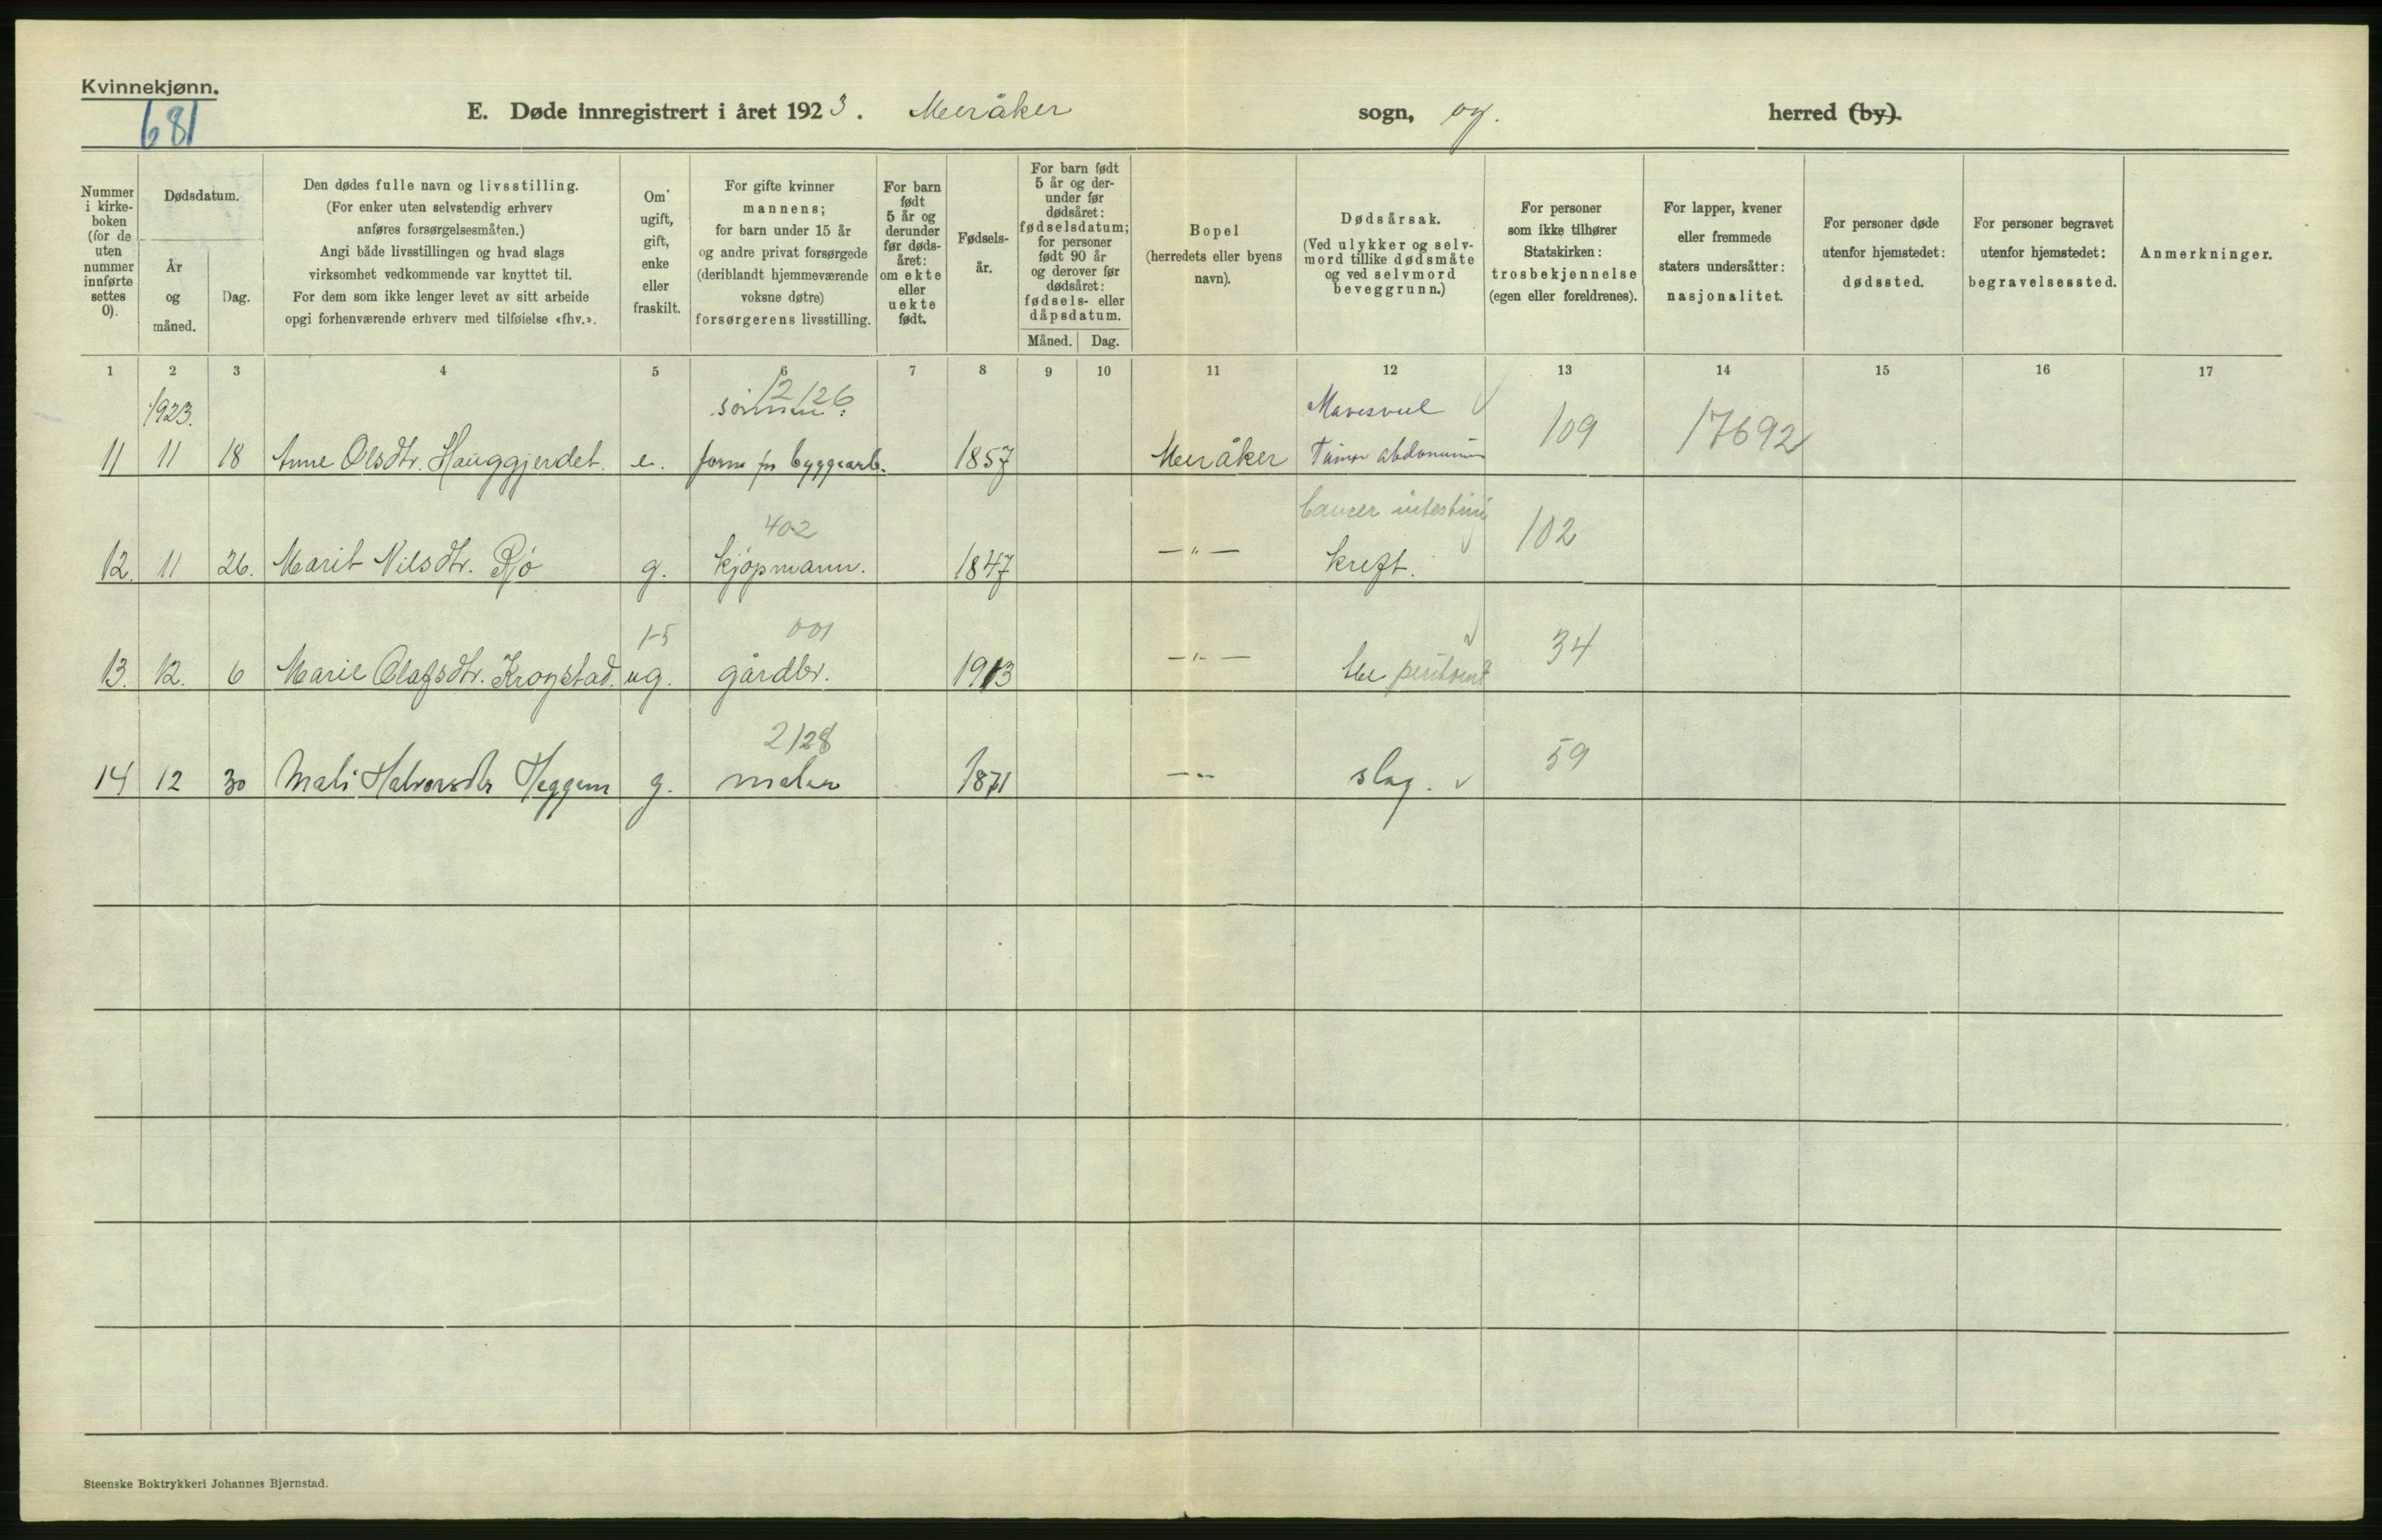 Kvinnekjønn.
681
E. Døde innregistrert i året 1923. Meråker sogn, og. herred (by).
Nummer i kirke- boken (for de uten nummer innførte settes 0).
Dødsdatum.
År og måned.
Dag.
Den dødes fulle navn og livsstilling.
(For enker uten selvstendig erhverv
anføres forsørgelsesmåten.)
Angi både livsstillingen og hvad slags
virksomhet vedkommende var knyttet til.
For dem som ikke lenger levet av sitt arbeide
opgi forhenværende erhverv med tilføielse «fhv.».
Om ugift, gift, enke eller fraskilt.
For gifte kvinner
mannens;
for barn under 15 år
og andre privat forsørgede
(deriblandt hjemmeværende
voksne døtre)
forsørgerens livsstilling.
For barn født 5 år og derunder før døds- året: om ekte eller uekte født.
Fødsels- år.
For barn født 5 år og der- under før dødsåret: fødselsdatum; for personer født 90 år og derover før dødsåret: fødsels- eller dåpsdatum.
Måned. Dag.
Bopel
(herredets eller byens
navn).
Dødsårsak.
(Ved ulykker og selv-
mord tillike dødsmåte
og ved selvmord
beveggrunn.)
For personer
som ikke tilhører
Statskirken:
trosbekjennelse
(egen eller foreldrenes).
For lapper, kvener
eller fremmede
staters undersåtter:
nasjonalitet.
For personer døde
utenfor hjemstedet:
dødssted.
For personer begravet
utenfor hjemstedet:
begravelsessted.
Anmerkninger.
1 2 3 4 5 6 7 8 9 10 11 12 13 14 15 16 17
1923. 12126 Mavesvul
11 11 18 Anne Olsdtr. Hauggjerdet. e. byggearb. 1857 Meråker Tumor abdominis 109 17692
402 Cancer intestini
12. 11 26. Marit Nilsdtr. g. kjøpmann. 1847 — " — kreft. 102
15 001
13. 12. 6 Marie Olafsdtr. Krogstad. ug. gårdbr. 1913 — " — tbc peritonit 34
2128
14 12 30 Mali Halvorsdtr Heggem g. maler 1871 — " — slag. 59
Steenske Boktrykkeri Johannes Bjørnstad.